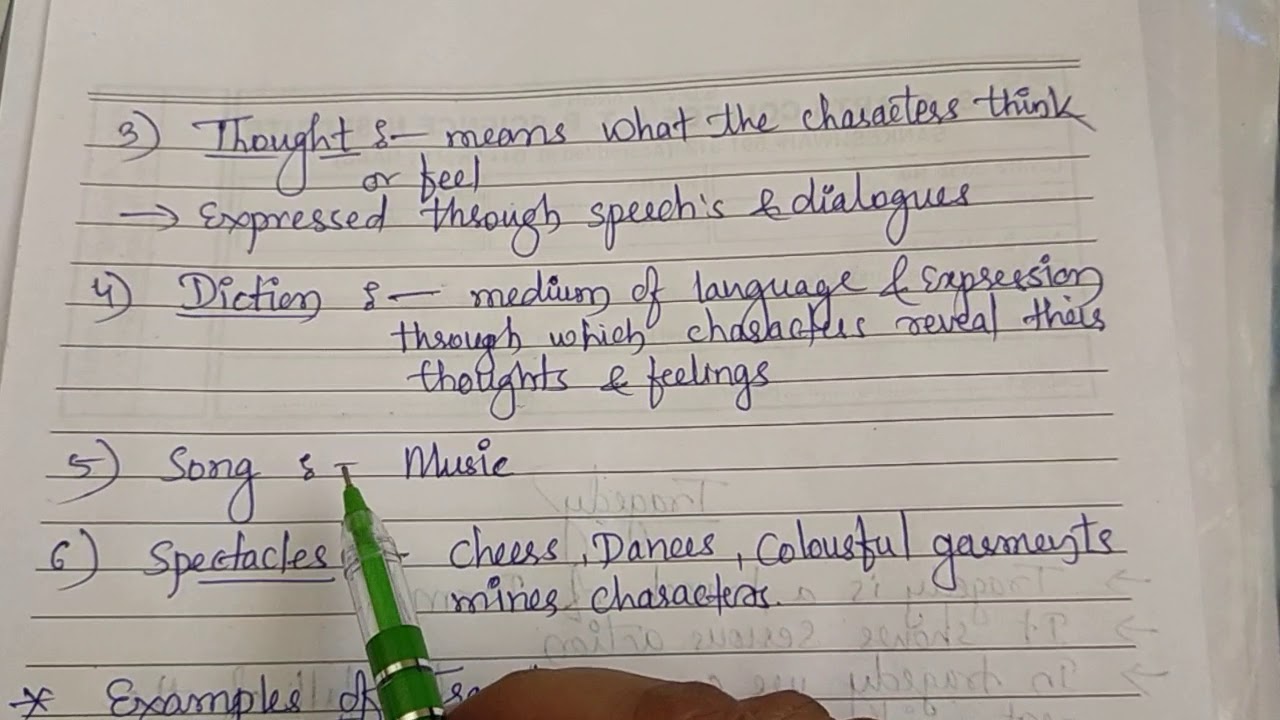 3) Thought :- means what the characters think
or feel
→ Expressed through speech's & dialogues
4) Diction :- medium of language & Expression
through which characters reveal their
thoughts & feelings
5) Song :- Music
6) Spectacles - Cheers, Dances, Colourful garments
mines characters.
* Examples of